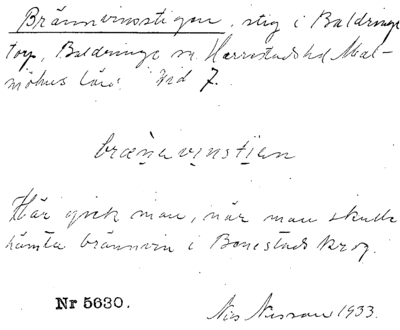 Brännvinsstigen, stig i Baldringe
torp, Baldringe sn Herrestads hd Mal-
möhus län. Vid 7.
bræn̥avinstian
Här gick man, när man skulle
hämta brännvin i Bonestads krog.
Nr 5630.
Nils Nilsson 1933.